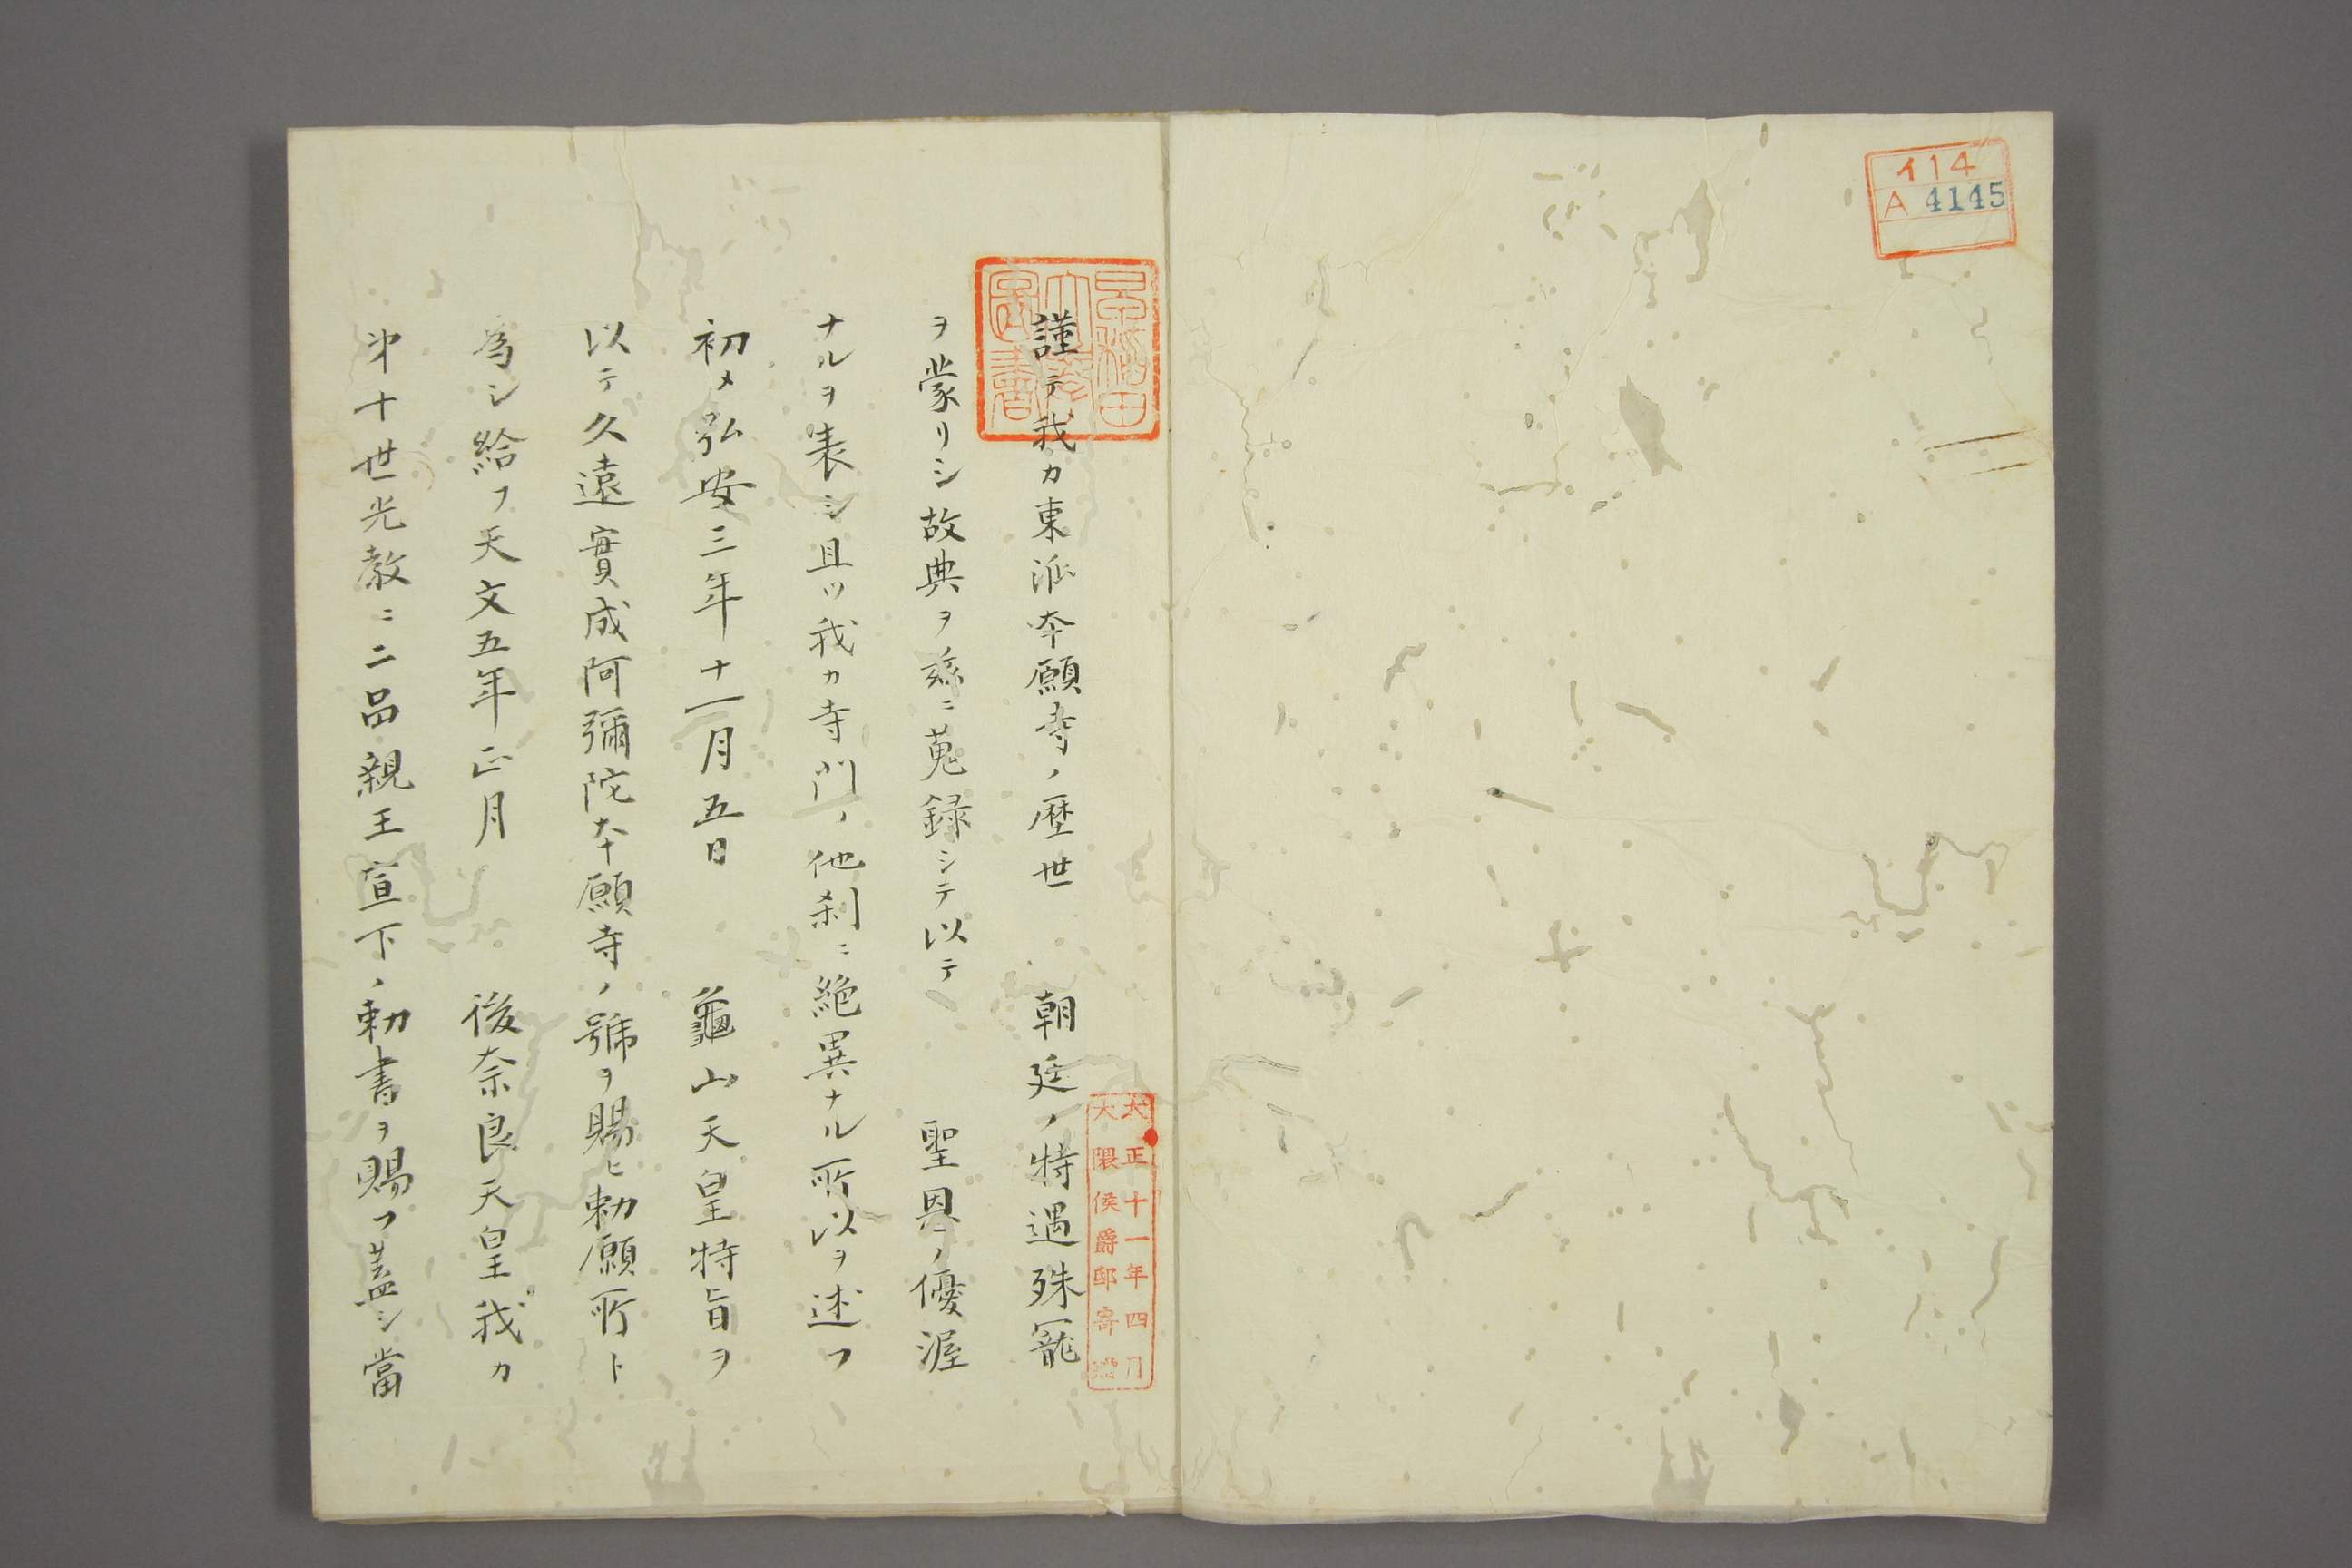 イ14
A 4145
早稲田
大學
圖書
大正十一年四月
大隈侯爵邸寄贈
謹テ我カ東派本願寺ノ歴世　朝廷ノ特遇殊寵
ヲ蒙リシ故典ヲ玆ニ蒐録シテ以テ　聖恩ノ優渥
ナルヲ表シ且ツ我カ寺門ノ他刹ニ絶異ナル所以ヲ述フ
初メ弘安三年十一月五日　龜山天皇特旨ヲ
以テ久遠實成阿彌陀本願寺ノ號ヲ賜ヒ勅願所ト
為シ給フ天文五年正月　後奈良天皇我カ
第十世光教ニ二品親王宣下ノ勅書ヲ賜フ蓋シ當